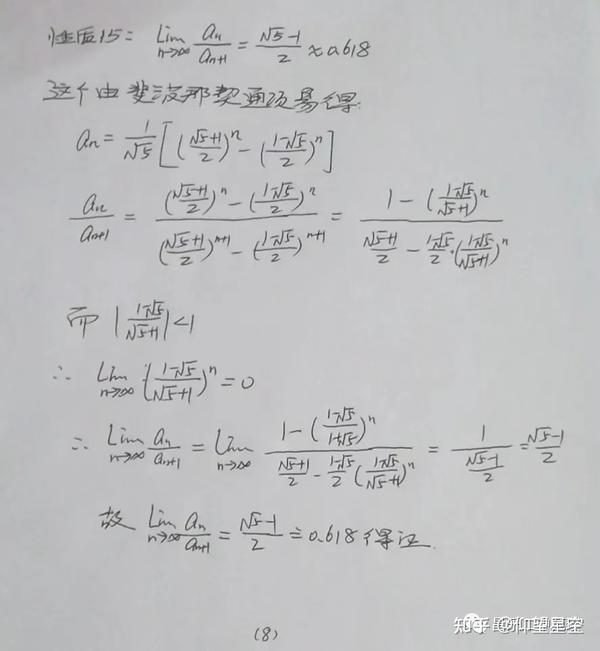 性质15: Lim_{n→∞} a_n/a_{n+1} = (√5-1)/2 ≈ 0.618
这个由斐波那契通项易得:
a_n = 1/√5 [((√5+1)/2)^n - ((1-√5)/2)^n]
a_n/a_{n+1} = (((√5+1)/2)^n - ((1-√5)/2)^n)/(((√5+1)/2)^{n+1} - ((1-√5)/2)^{n+1}) = (1 - ((1-√5)/(√5+1))^n)/((√5+1)/2 - (1-√5)/2·((1-√5)/(√5+1))^n)
而 |(1-√5)/(√5+1)| < 1
∴ Lim_{n→∞} ((1-√5)/(√5+1))^n = 0
∴ Lim_{n→∞} a_n/a_{n+1} = Lim_{n→∞} (1 - ((1-√5)/(1+√5))^n)/((√5+1)/2 - (1-√5)/2 ((1-√5)/(√5+1))^n) = 1/((√5-1)/2) = (√5-1)/2
故 Lim_{n→∞} a_n/a_{n+1} = (√5-1)/2 ≐ 0.618 得证.
(8)
知乎 @仰望星空